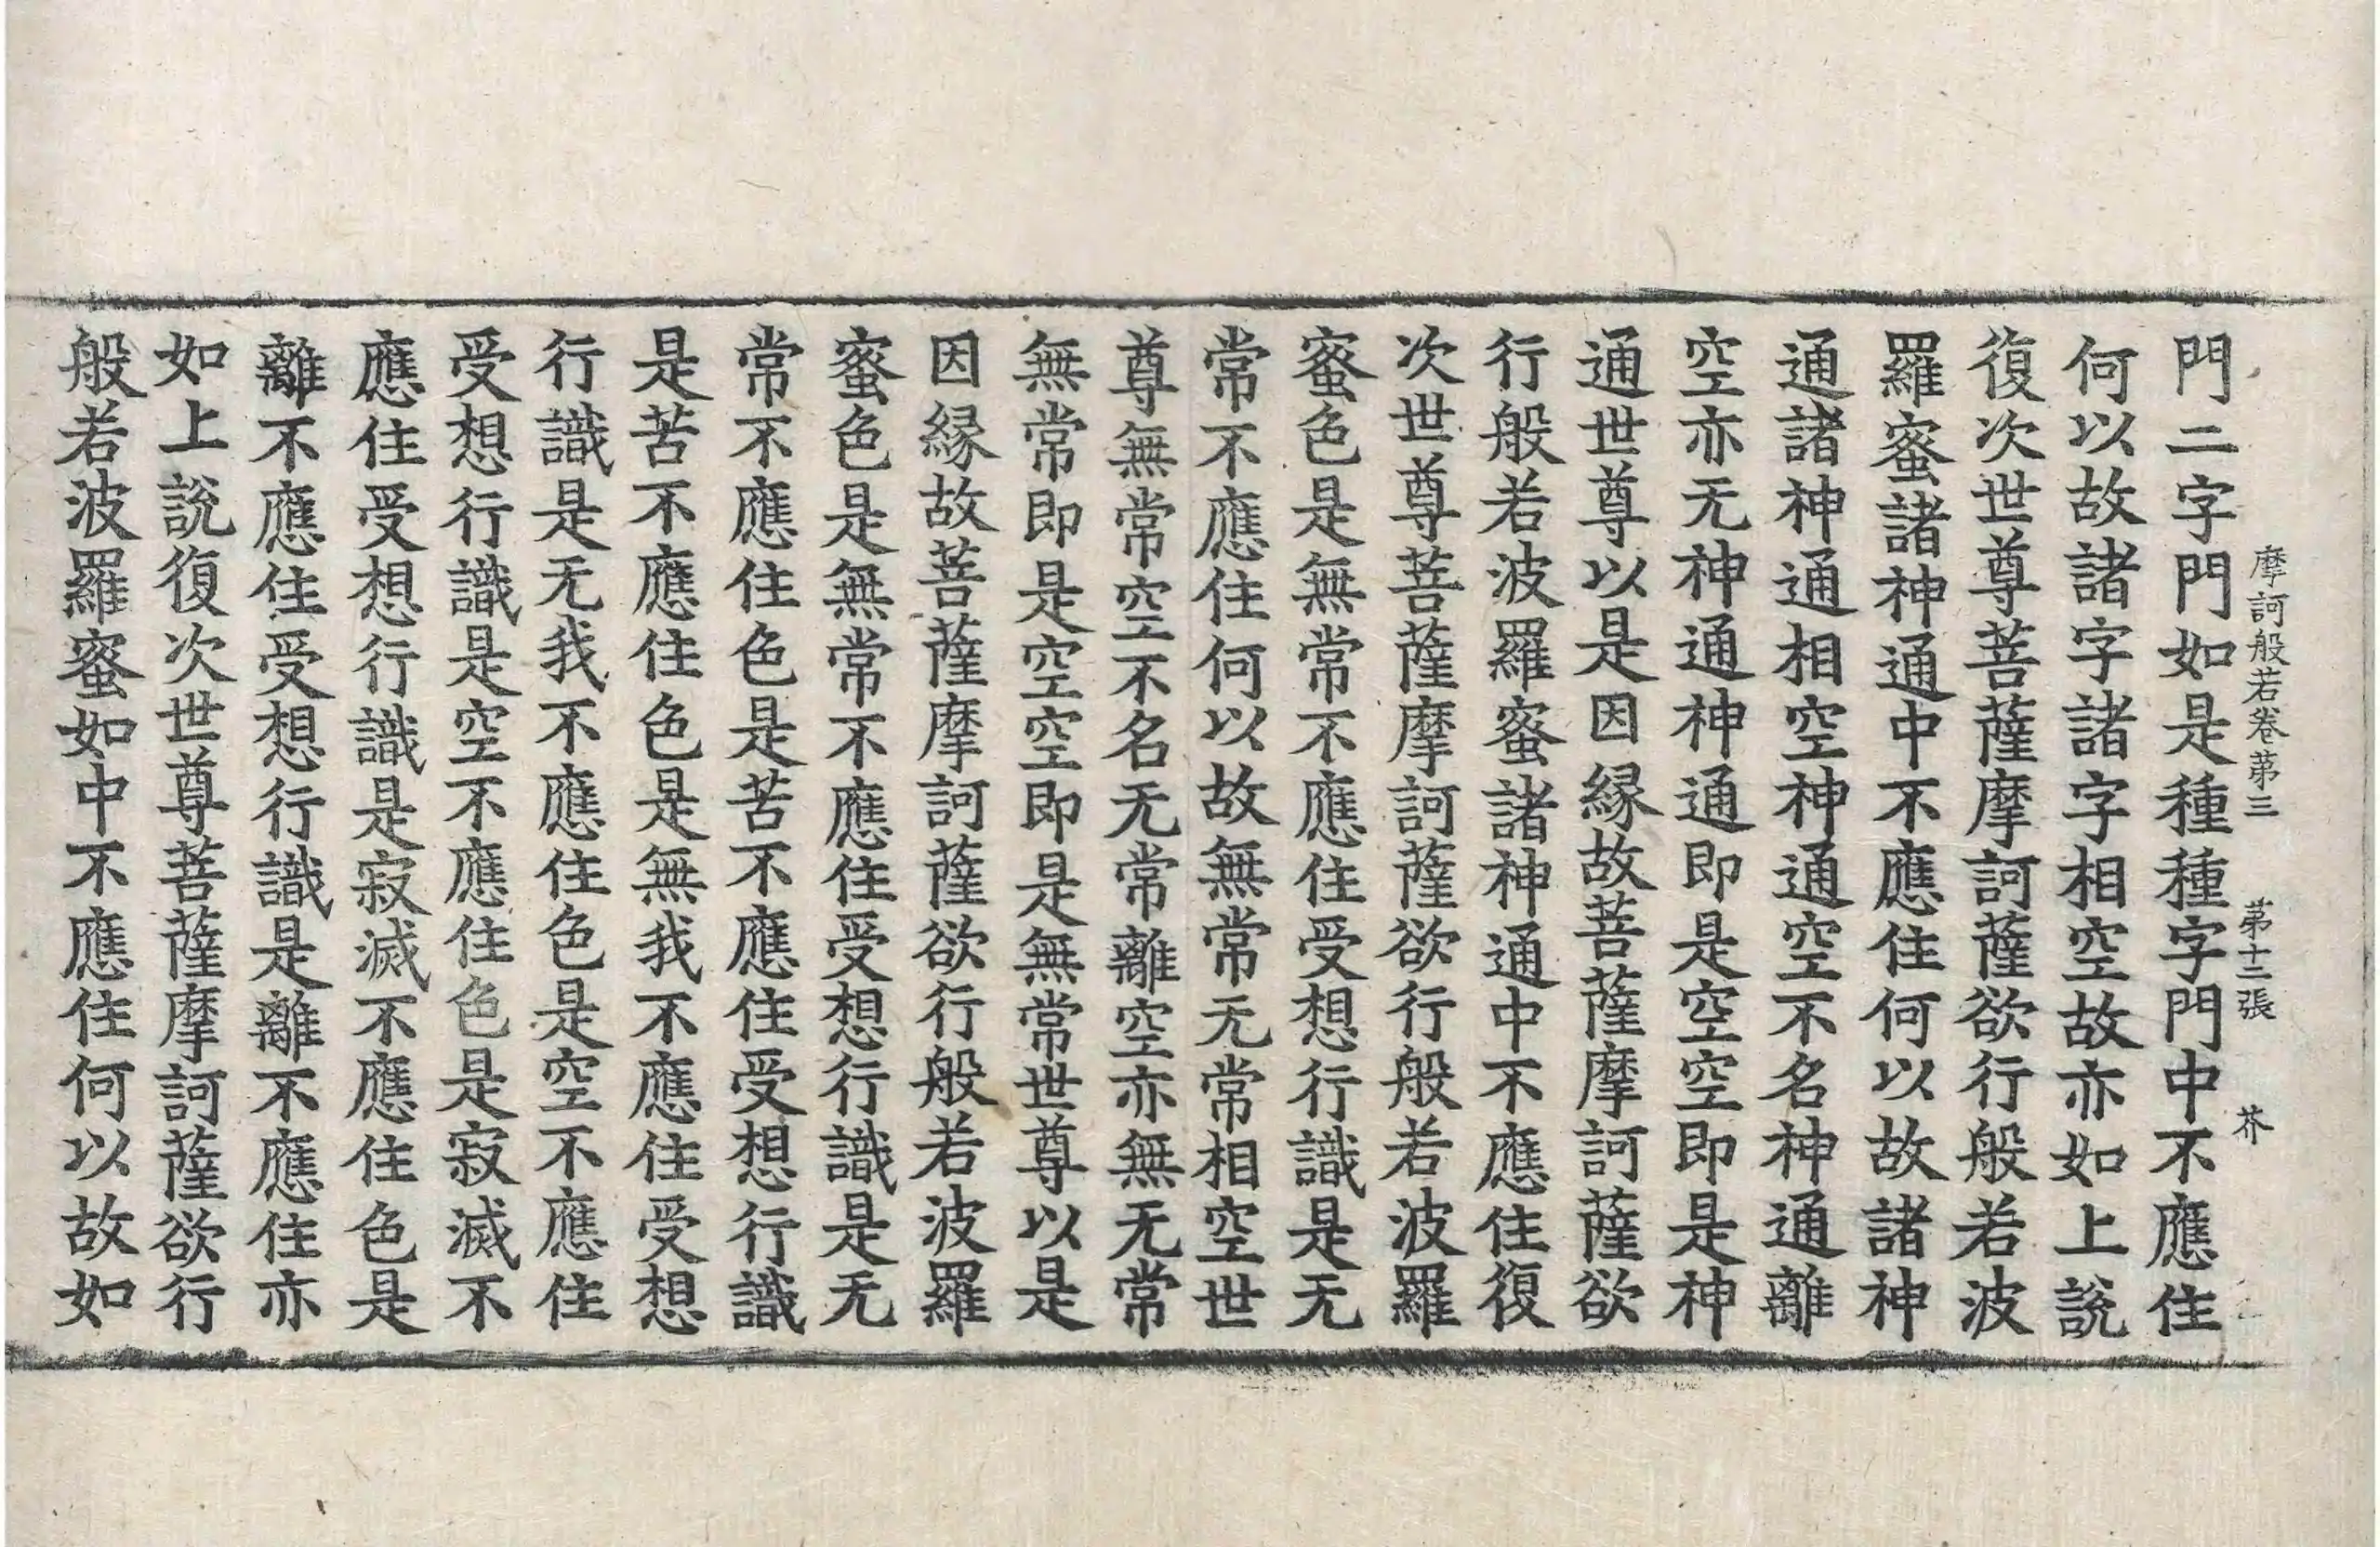 摩訶般若卷第三 第十二張 芥
門二字門如是種種字門中不應住
何以故諸字諸字相空故亦如上說
復次世尊菩薩摩訶薩欲行般若波
羅蜜諸神通中不應住何以故諸神
通諸神通相空神通空不名神通離
空亦无神通神通即是空空即是神
通世尊以是因緣故菩薩摩訶薩欲
行般若波羅蜜諸神通中不應住復
次世尊菩薩摩訶薩欲行般若波羅
蜜色是無常不應住受想行識是无
常不應住何以故無常无常相空世
尊無常空不名无常離空亦無无常
無常即是空空即是無常世尊以是
因緣故菩薩摩訶薩欲行般若波羅
蜜色是無常不應住受想行識是无
常不應住色是苦不應住受想行識
是苦不應住色是無我不應住受想
行識是无我不應住色是空不應住
受想行識是空不應住色是寂滅不
應住受想行識是寂滅不應住色是
離不應住受想行識是離不應住亦
如上說復次世尊菩薩摩訶薩欲行
般若波羅蜜如中不應住何以故如